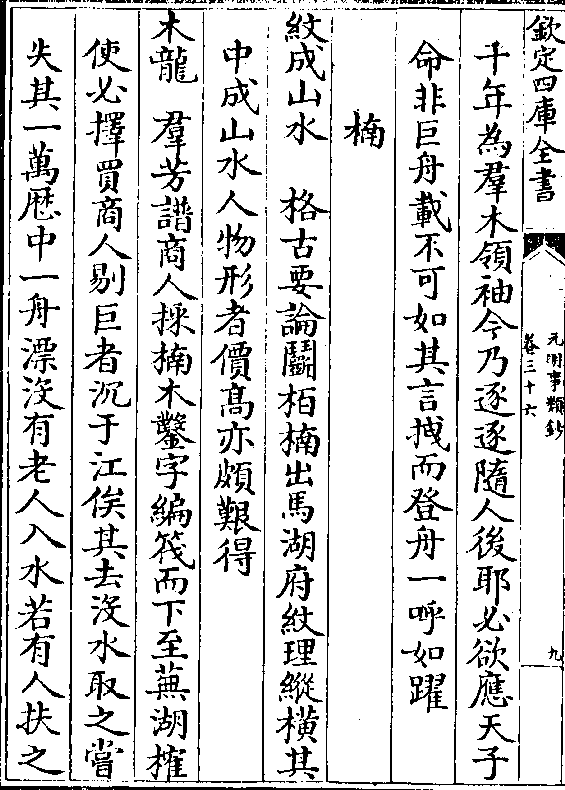 欽定四庫全書
元明事類鈔
卷三十六
九
千年為羣木領袖今乃逐逐隨人後耶必欲應天子
命非巨舟載不可如其言拽而登舟一呼如躍
楠
紋成山水 格古要論鬭栢楠出馬湖府紋理縱橫其
中成山水人物形者價髙亦頗艱得
木龍 羣芳譜商人採楠木鑿字編筏而下至蕪湖榷
使必擇買商人剔巨者沉于江俟其去沒水取之嘗
失其一萬厯中一舟漂沒有老人入水若有人扶之